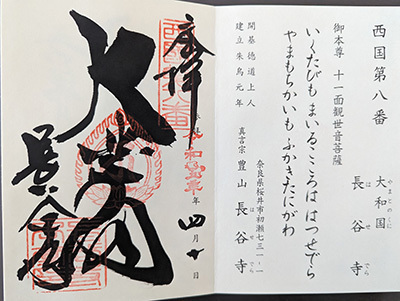 西国第八番
大和国
やまとのくに
長谷寺
はせでら
御本尊 十一面観世音菩薩
いくたびも まいるこころは はつせでら
やまもちかいも ふかきたにがわ
開基徳道上人
建立朱鳥元年
奈良県桜井市初瀬七三一-一
真言宗 豊山 長谷寺
はせでら
奉拝
大悲閣
長谷寺
年 四月十日